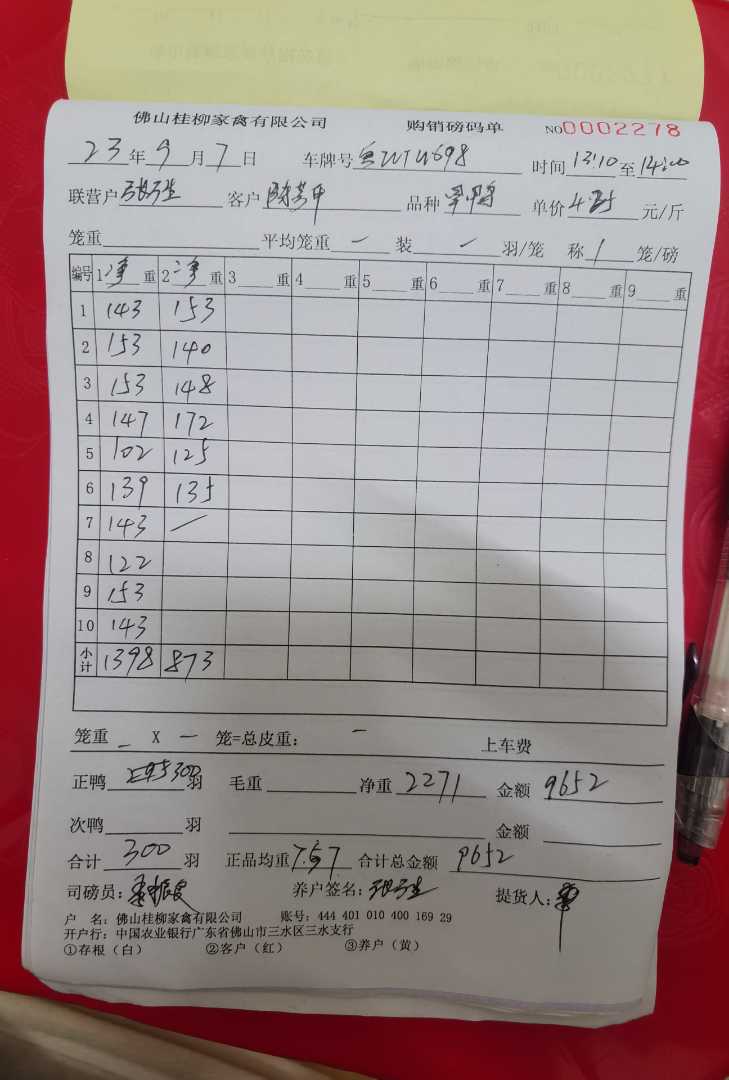 佛山桂柳家禽有限公司 购销磅码单 NO0002278
23年9月7日 车牌号 时间13:10至14:00
联营户 客户 品种 单价4.25元/斤
笼重 平均笼重 — 装 — 羽/笼 称 1 笼/磅
编号 1净重 2净重 3 重 4 重 5 重 6 重 7 重 8 重 9 重
1 143 153
2 153 140
3 153 148
4 147 172
5 102 125
6 139 135
7 143 —
8 122
9 153
10 143
小计 1398 873
笼重 — X — 笼=总皮重: — 上车费
正鸭 300羽 毛重 净重 2271 金额 9652
次鸭 羽 金额
合计 300 羽 正品均重 7.57 合计总金额 9652
司磅员: 养户签名: 提货人:
户 名: 佛山桂柳家禽有限公司 账号: 444 401 010 400 169 29
开户行: 中国农业银行广东省佛山市三水区三水支行
①存根(白) ②客户(红) ③养户(黄)